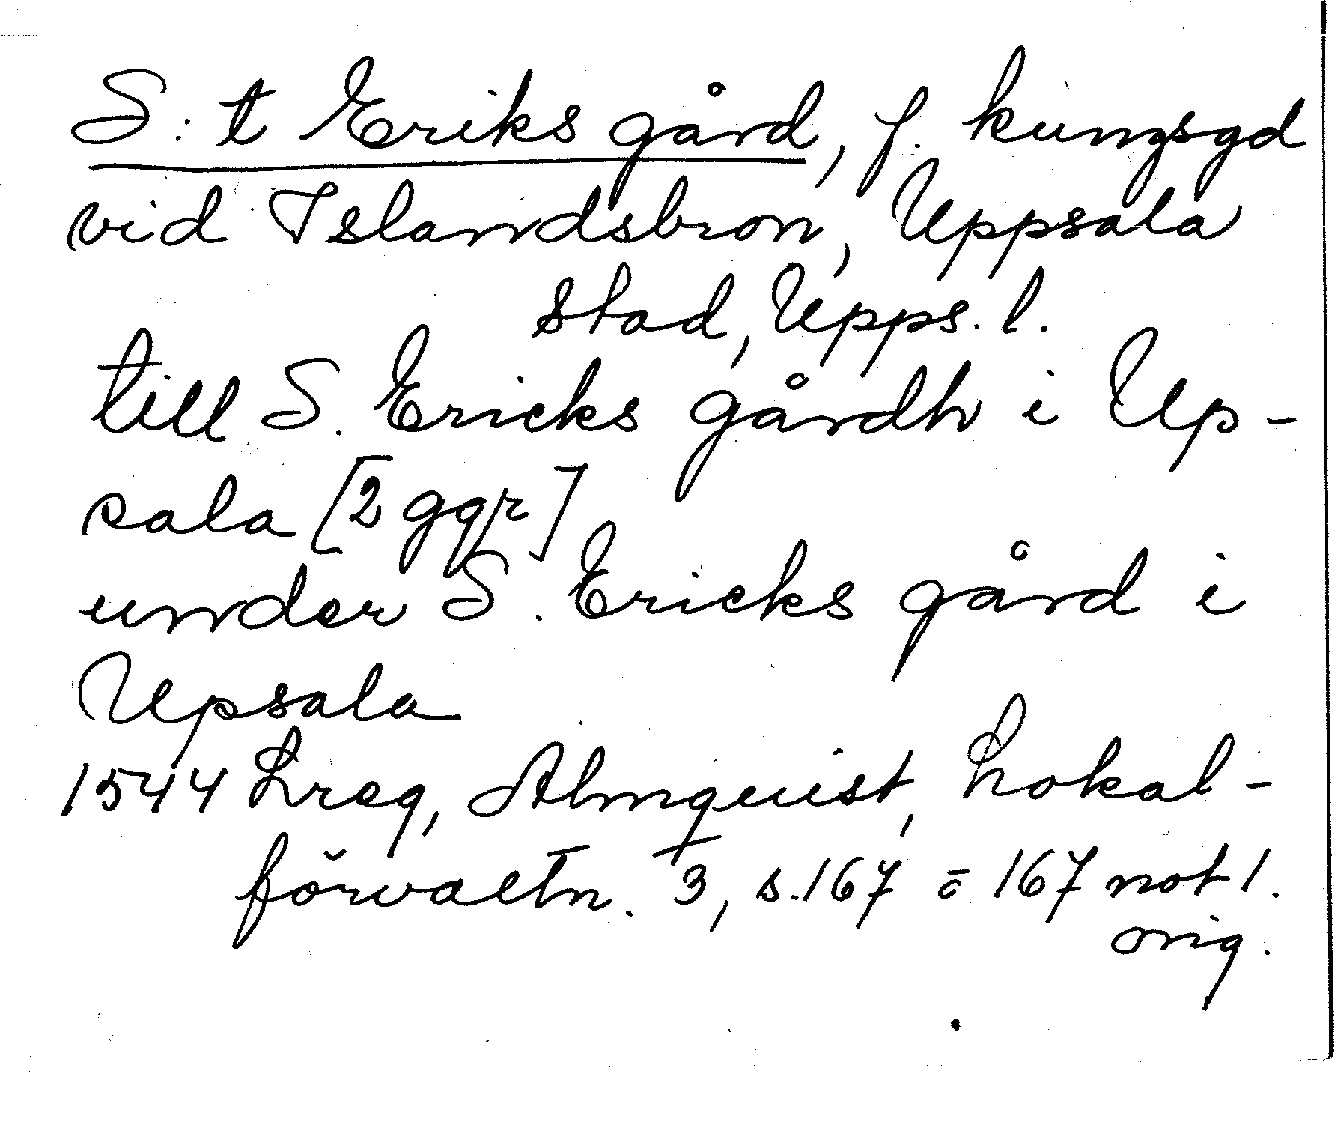 S:t Eriks gård, f. kungsgd
vid Islandsbron, Uppsala
stad, Upps. l.
till S. Ericks gårdh i Up-
sala [2 ggr]
under S. Ericks gård i
Upsala
1544 Lreg, Almquist, Lokal-
förvaltn. 3, s. 167 o 167 not 1.
orig.